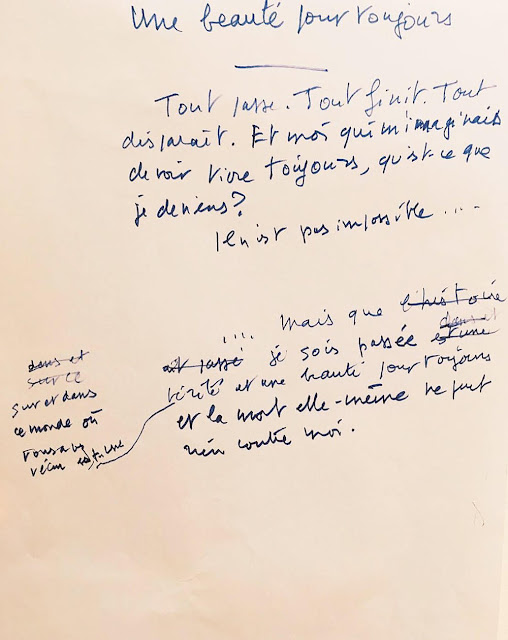 Une beauté pour toujours
Tout passe. Tout finit. Tout
disparaît. Et moi qui m'imaginais
devoir vivre toujours, qu'est-ce que
je deviens?
Il n'est pas impossible ....
.... mais que l'histoire
dans et
ait passé je sois passée est une
dans et
sur ce
sur et dans
ce monde où
vous avez
vécu est une
vérité et une beauté pour toujours
et la mort elle-même ne peut
rien contre moi.